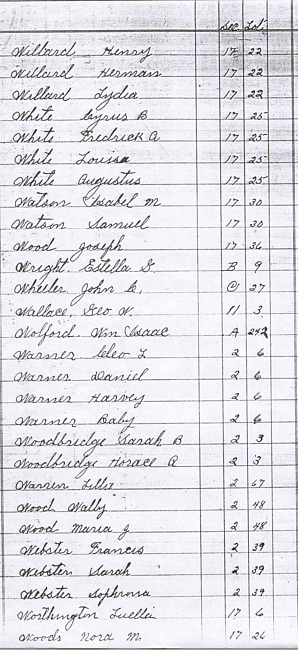 Sec Lot
Willard Henry 17 22
Willard Herman 17 22
Willard Lydia 17 22
White Cyrus B 17 25
White Fredrick A 17 25
White Louisa 17 25
White Augustus 17 25
Watson Isabel M 17 30
Watson Samuel 17 30
Wood Joseph 17 36
Wright. Estella G. B 9
Wheeler John C, C 27
Wallace, Geo W. 11 3
Wolford. Wm Isaac A 242
Warner Cleo L 2 6
Warner Daniel 2 6
Warner Harvey 2 6
Warner Baby 2 6
Woodbridge Sarah B 2 3
Woodbridge Horace A 2 3
Warren Lillie 2 67
Wood Wally 2 48
Wood Maria J 2 48
Webster Francis 2 39
Webster Sarah 2 39
Webster Sophrona 2 39
Worthington Luella 17 6
Woods Nora M. 17 26